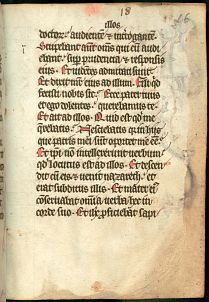 18
illos
doctoꝝ. audientē ⁊ ītrogantē.
Stupebant aūt om̄s qui eū audi
ebant. suꝑ prudencia ⁊ responsis
eius. Et uidētes admirati sunt.
Et dixit mr̄ eius ad illum. Fili qͥd
fecisti nobis sic. Ecce pater tuus
et ego dolentes. querebamus te.
Et ait ad illos. Quid est qd me
querebatis. Nesciebatis quia in hijs
que patris mei sūt oportet me eē.
Et ip̄i nō intellexerunt uerbum
qd locutus est ad illos. Et descen
dit cū eis ⁊ uenit nazareth. et
erat subditus illis. Et mater eiꝰ
cōseruabat omnia uerba hec in
corde suo. Et ih̄c ꝓficiebat sapi